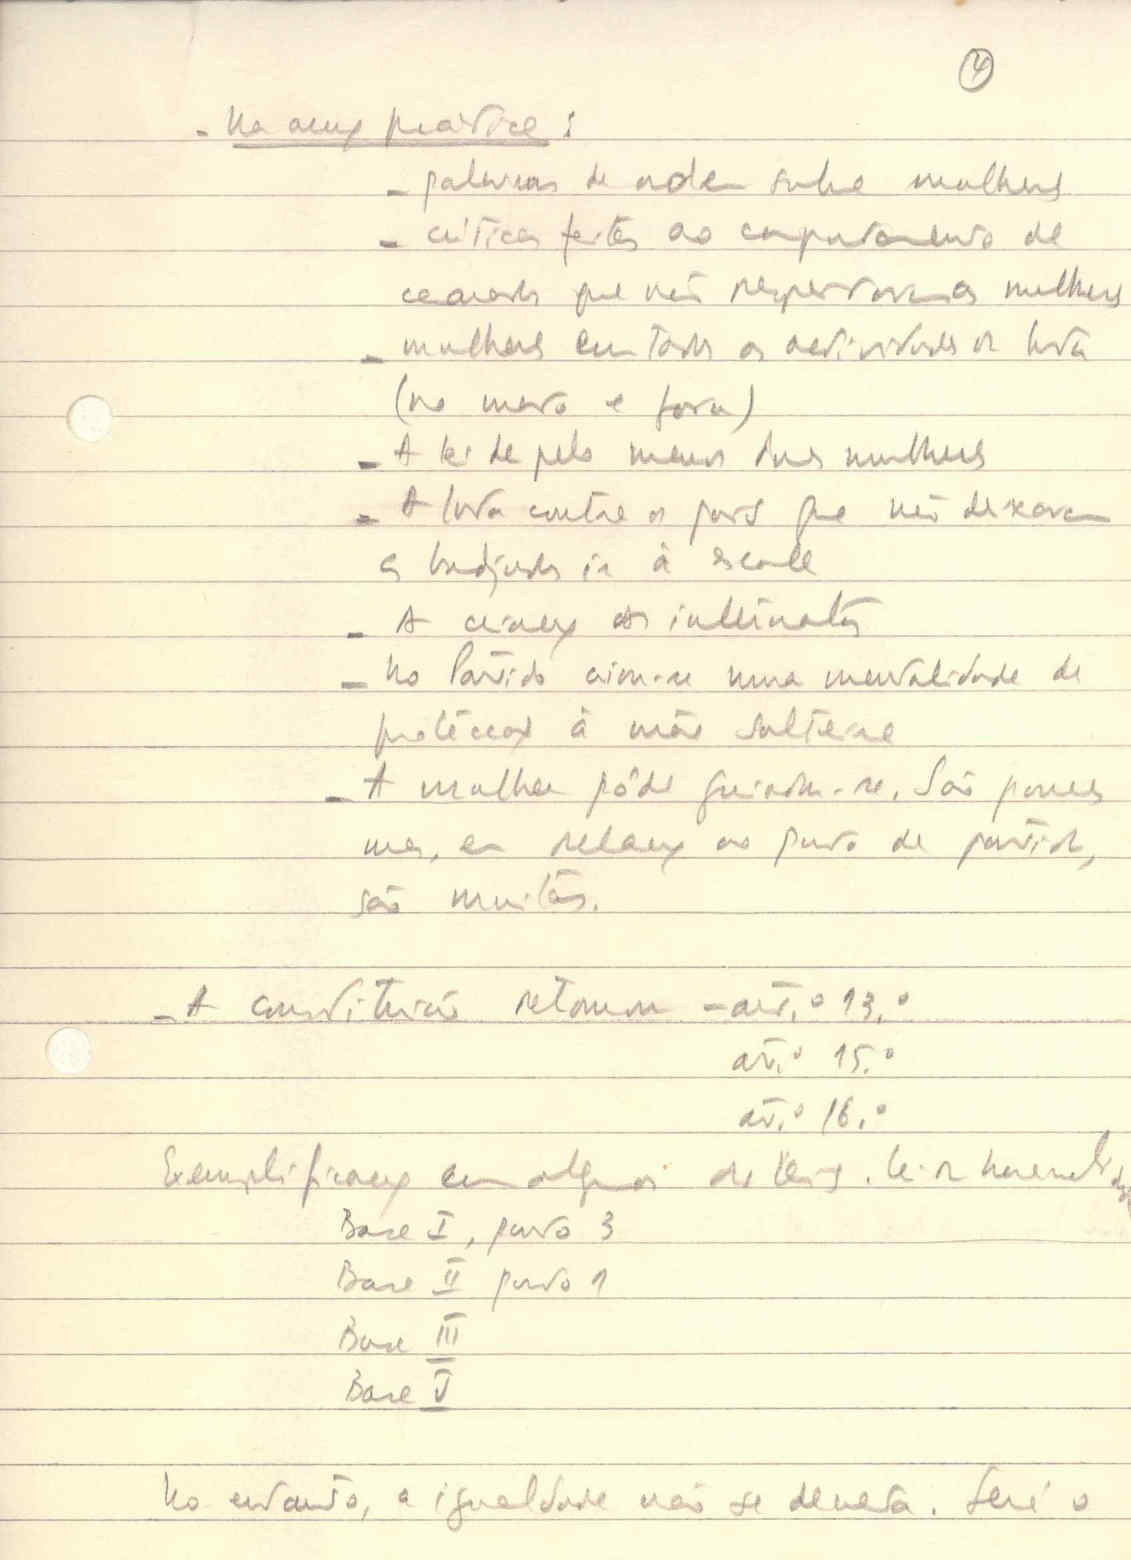 4
- Na acção prática:
- palavras de ordem sobre mulheres
- críticas feitas ao comportamento de
camaradas que não respeitavam as mulheres
- mulheres em todas as actividades da luta
(no mato e fora)
- A lei de pelo menos duas mulheres
- A luta contra os pais que não deixavam
as badjudas ir à escola
- A criação dos internatos
- No Partido criou-se uma mentalidade de
protecção à mãe solteira
- A mulher pôde guindar-se. São poucas
mas, em relação ao ponto de partida,
são muitas.
- A constituição retomou - art.º 13.º
art.º 15.º
art.º 16.º
Exemplificação em algumas das leis. Lei da
Base I, ponto 3
Base II ponto 1
Base III
Base V
No entanto, a igualdade não se decreta. Será o